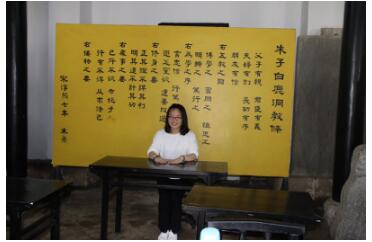 朱子白鹿洞教條
父子有親 君臣有義
夫婦有別 長幼有序
朋友有信
右五教之目
博學之 審問之 思之
明辨之 篤行之
右為學之序
言忠信 行篤
遷善改過
右修身之要
正其誼不謀其利
明其道不計其功
右處事之要
己所不欲 勿施於人
行有不得 反求諸己
右接物之要
宋淳熙七年 朱熹